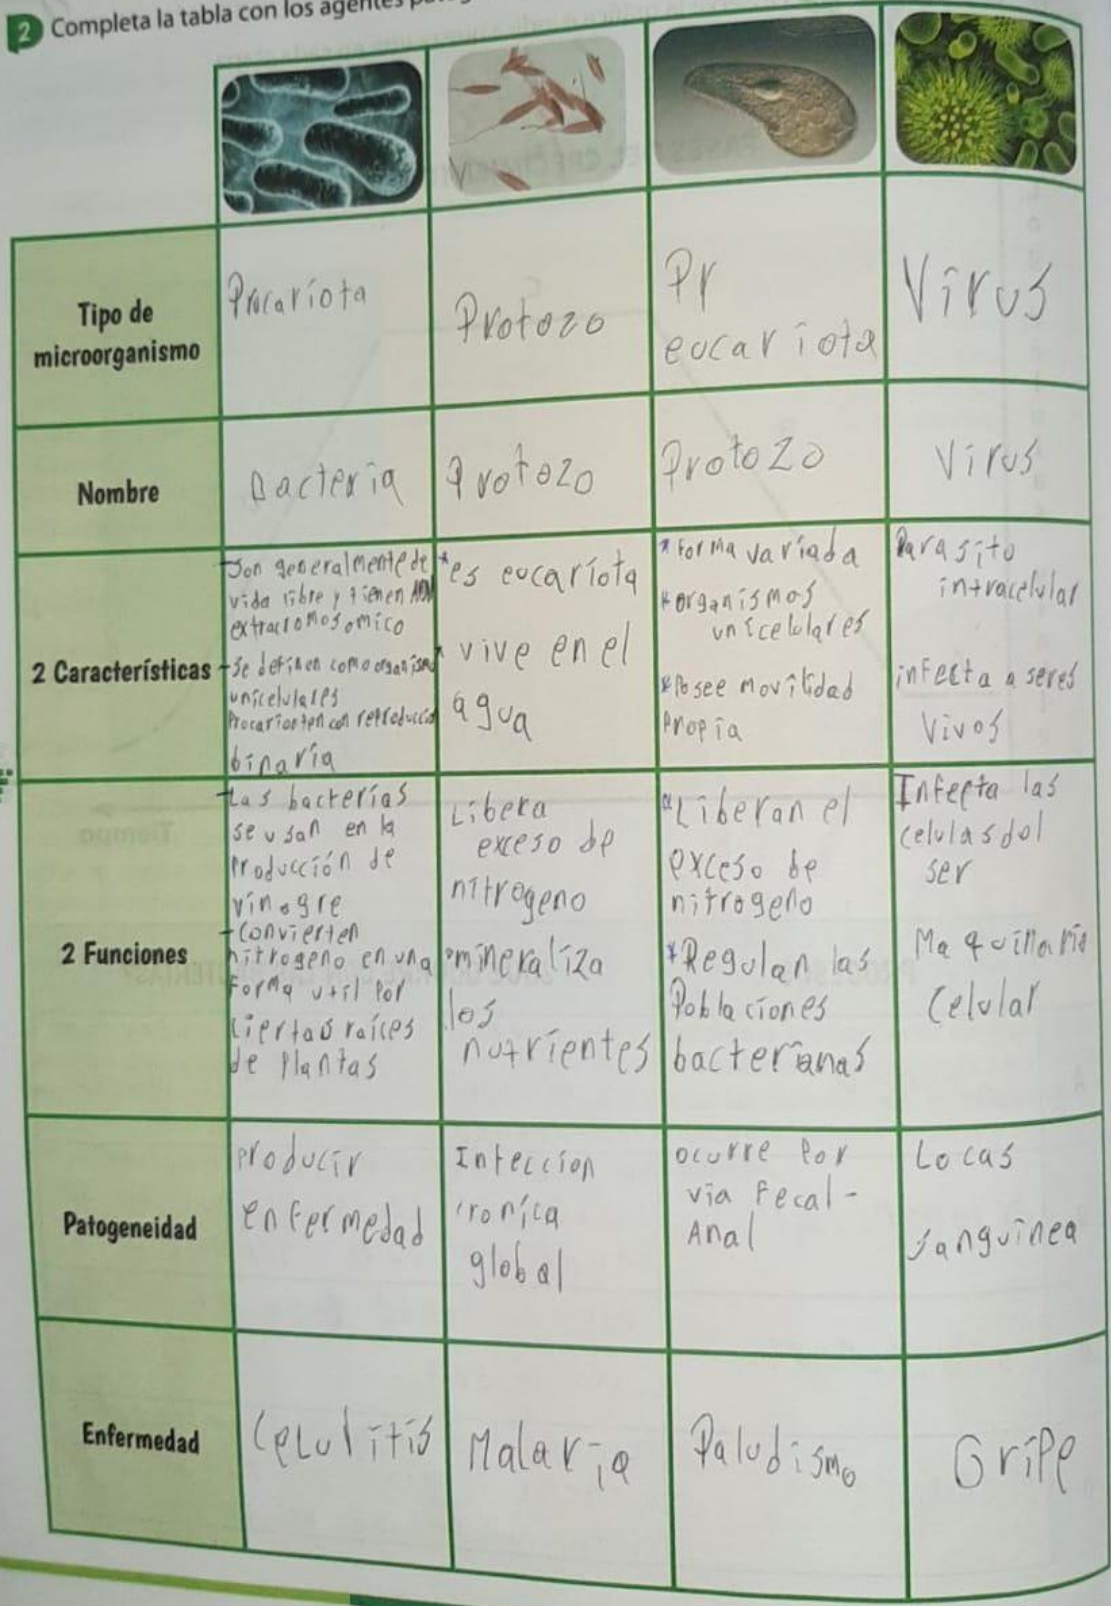 2 Completa la tabla con los agentes
Tipo de
microorganismo
Procariota
Protozo
Pr
eucariota
Virus
Nombre
Bacteria
Protozo
Protozo
Virus
2 Características
-Son generalmente de
vida libre y tienen ADN
extracromosomico
-Se definen como organismo
unicelulares
Procarionten con retroducció
binaria
*es eucariota
* vive en el
agua
* forma variada
*organismos
unicelulares
*Posee movilidad
Propia
Parasito
intracelular
infecta a seres
Vivos
2 Funciones
-Las bacterias
se usan en la
Producción de
vinagre
-Convierten
nitrogeno en una
forma util por
ciertas raíces
de Plantas
Libera
exceso de
nitrogeno
mineraliza
los
nutrientes
*Liberan el
exceso de
nitrogeno
*Regulan las
Poblaciones
bacterianas
Infecta las
celulas del
ser
Maquinaria
Celular
Patogeneidad
Producir
enfermedad
Infeccion
cronica
global
ocurre Por
via Fecal-
Anal
Locas
sanguinea
Enfermedad
Celulitis
Malaria
Paludismo
Gripe